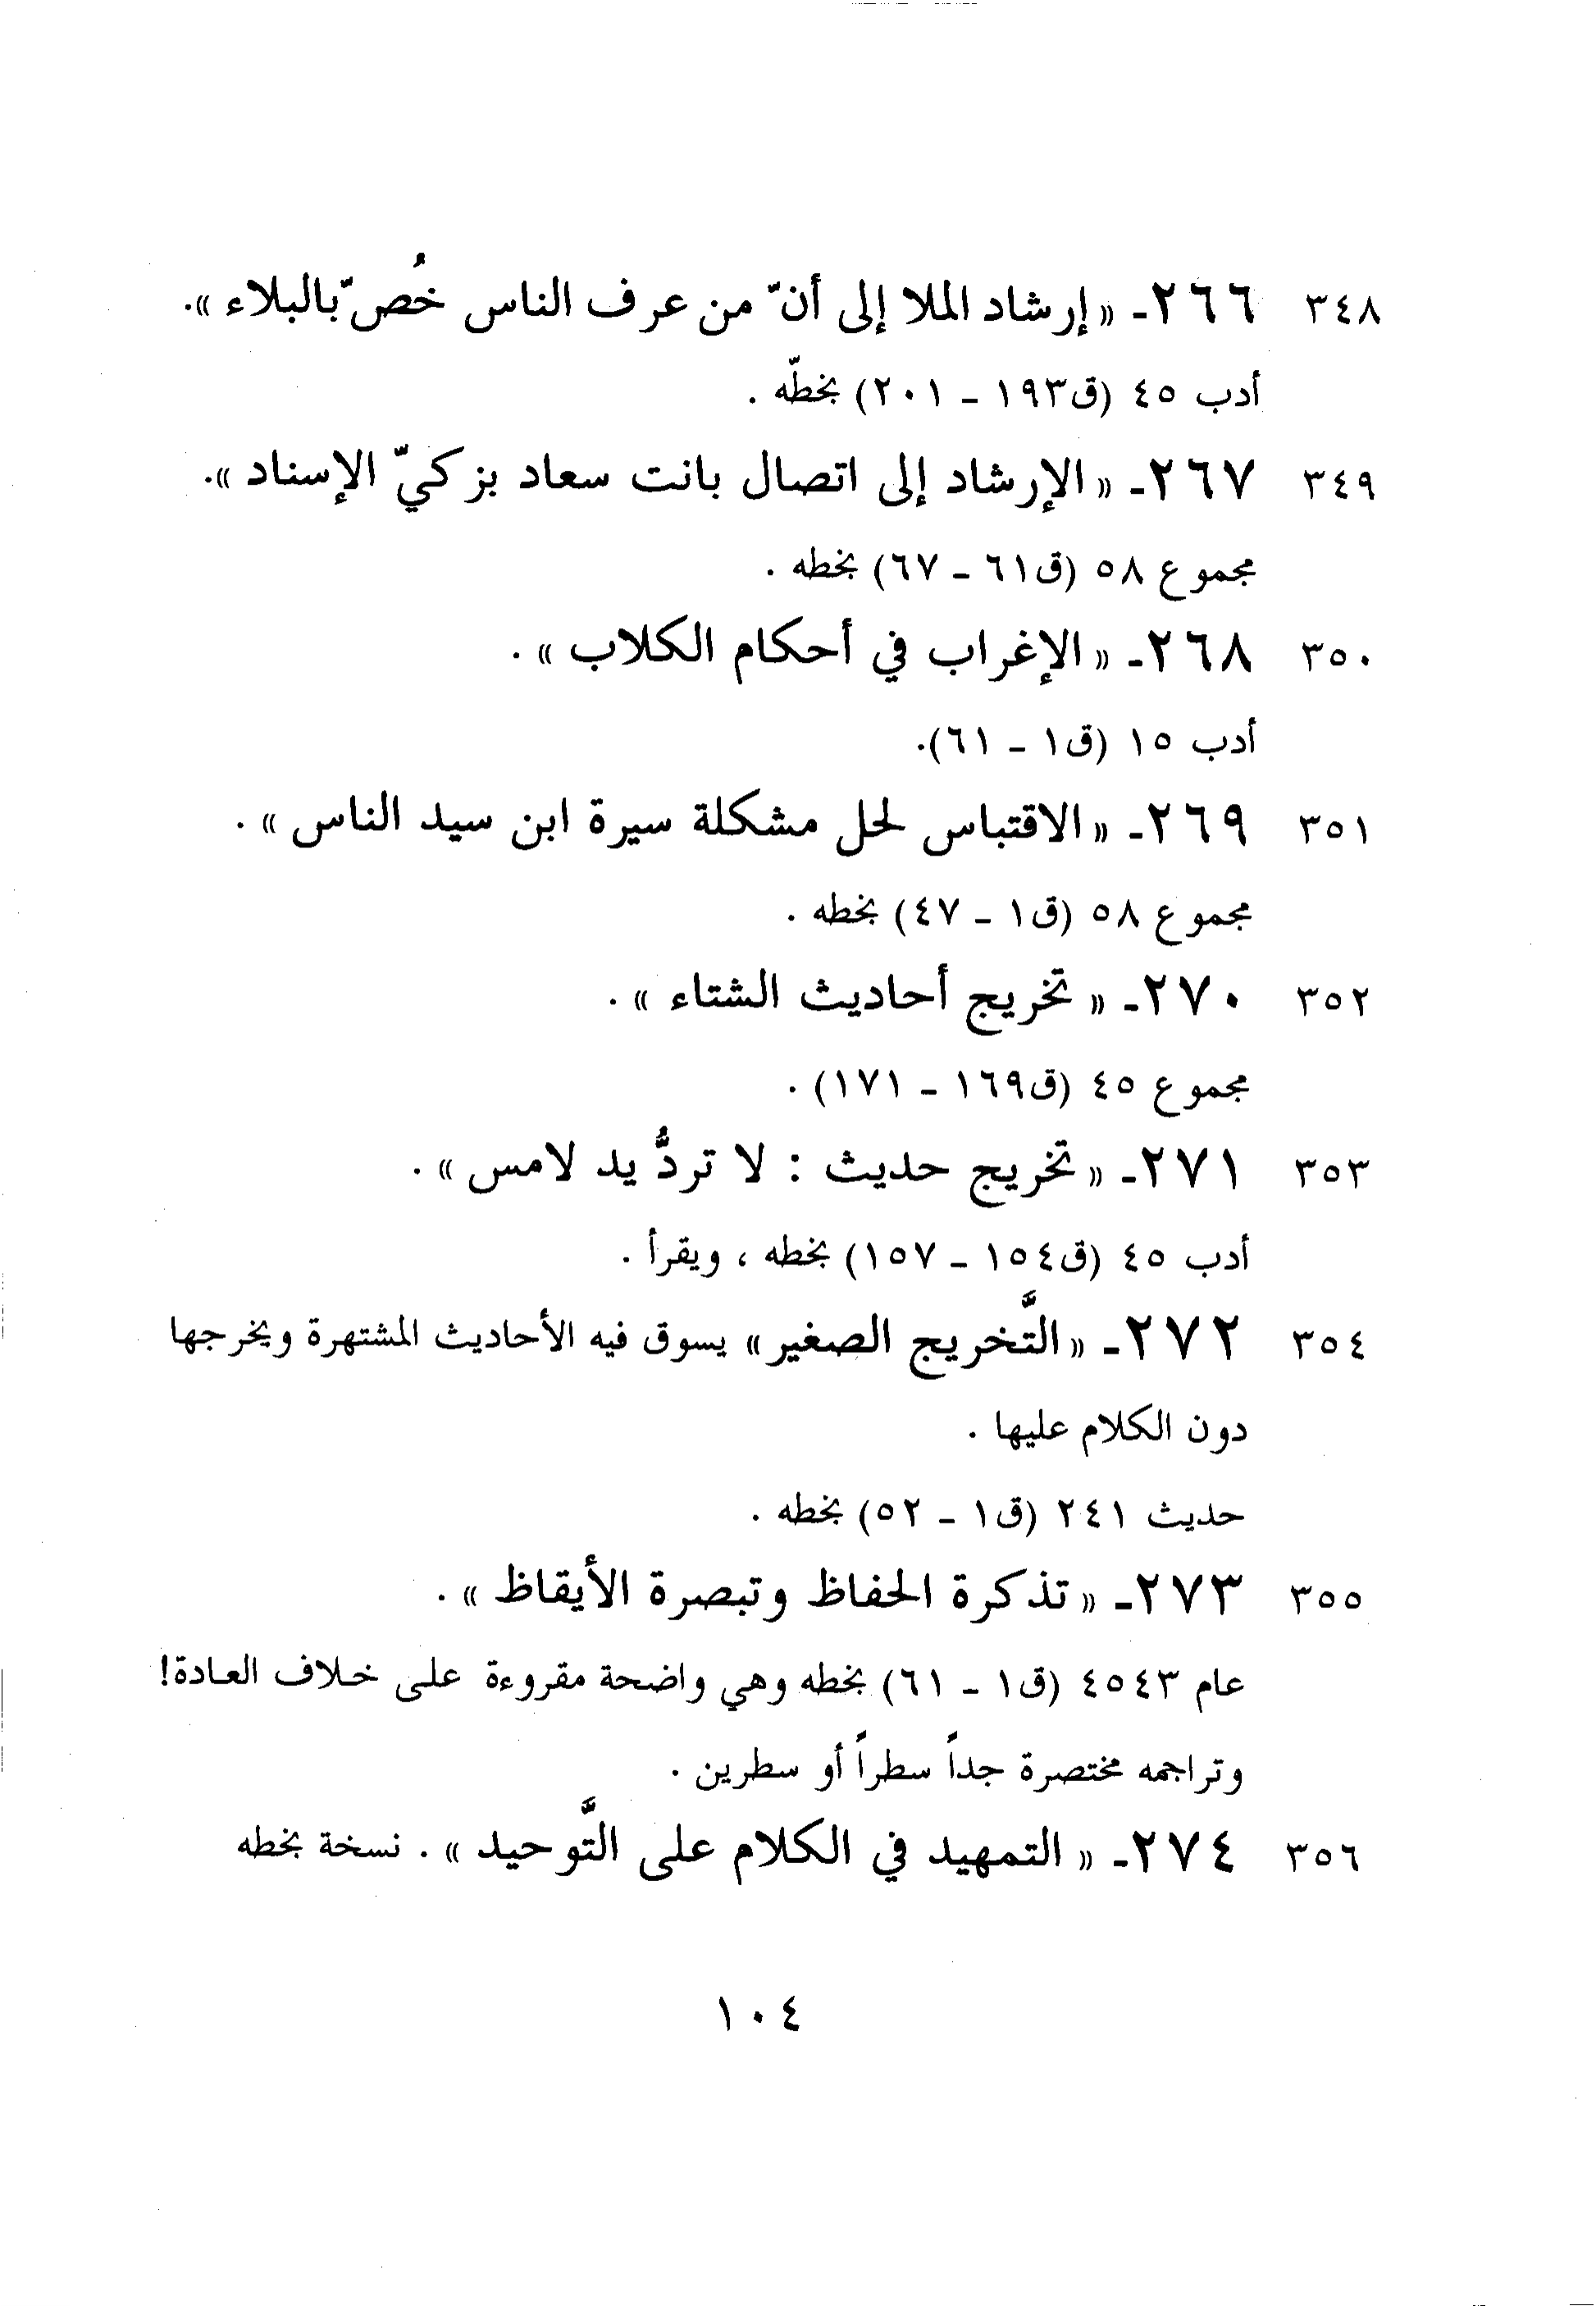 ٣٤٨ ٢٦٦ـ « إرشاد الملا إلى أنّ من عرف الناس خُصّ بالبلاء ».
أدب ٤٥ (ق١٩٣ - ٢٠١) بخطّه .
٣٤٩ ٢٦٧ـ « الإرشاد إلى اتصال بانت سعاد بزكيّ الإسناد ».
مجموع ٥٨ (ق٦١ - ٦٧) بخطه .
٣٥٠ ٢٦٨ـ « الإغراب في أحكام الكلاب » .
أدب ١٥ (ق١ - ٦١).
٣٥١ ٢٦٩ـ « الاقتباس لحل مشكلة سيرة ابن سيد الناس » .
مجموع ٥٨ (ق١ - ٤٧) بخطه .
٣٥٢ ٢٧٠ـ « تخريج أحاديث الشتاء » .
مجموع ٤٥ (ق١٦٩ - ١٧١) .
٣٥٣ ٢٧١ـ « تخريج حديث : لا تردُّ يد لامس » .
أدب ٤٥ (ق١٥٤ - ١٥٧) بخطه ، ويقرأ .
٣٥٤ ٢٧٢ـ « التَّخريج الصغير » يسوق فيه الأحاديث المشتهرة ويخرجها
دون الكلام عليها .
حديث ٢٤١ (ق١ - ٥٢) بخطه .
٣٥٥ ٢٧٣ـ « تذكرة الحفاظ وتبصرة الأيقاظ » .
عام ٤٥٤٣ (ق١ - ٦١) بخطه وهي واضحة مقروءة على خلاف العادة!
وتراجمه مختصرة جداً سطراً أو سطرين .
٣٥٦ ٢٧٤ـ « التمهيد في الكلام على التَّوحيد » . نسخة بخطه
١٠٤